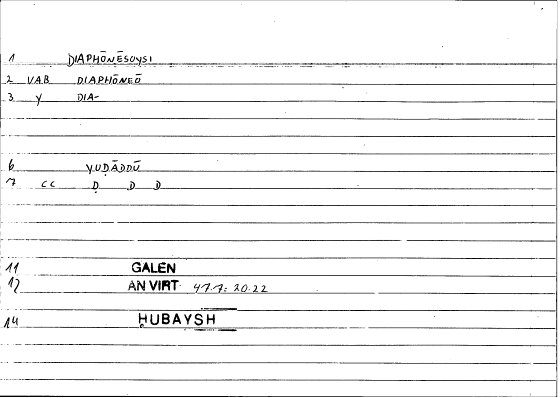 1 DIAPHŌNĒSOUSI
2 VAB DIAPHŌNEŌ
3 Y DIA-
6 YUḌĀDDŪ
7 CC Ḍ D D
11 GALEN
12 AN VIRT 47.7: 20.22
14 ḤUBAYSH